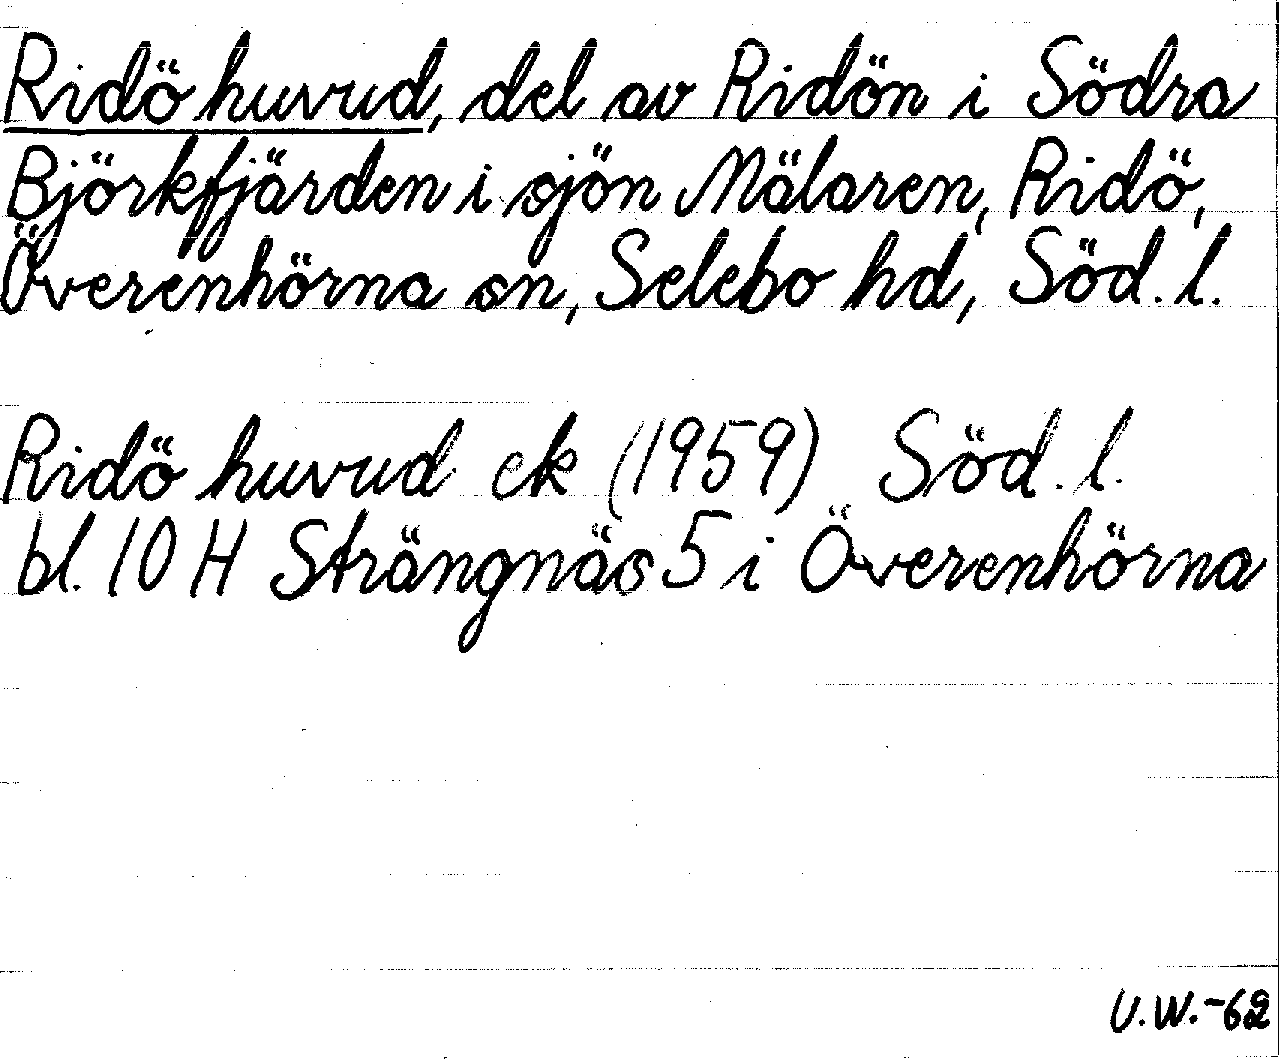 Ridö huvud, del av Ridön i Södra
Björkfjärden i sjön Mälaren, Ridö,
Överenhörna sn, Selebo hd, Söd. l.
Ridö huvud ek (1959) Söd. l.
bl. 10 H Strängnäs 5 i Överenhörna
U.W.-62